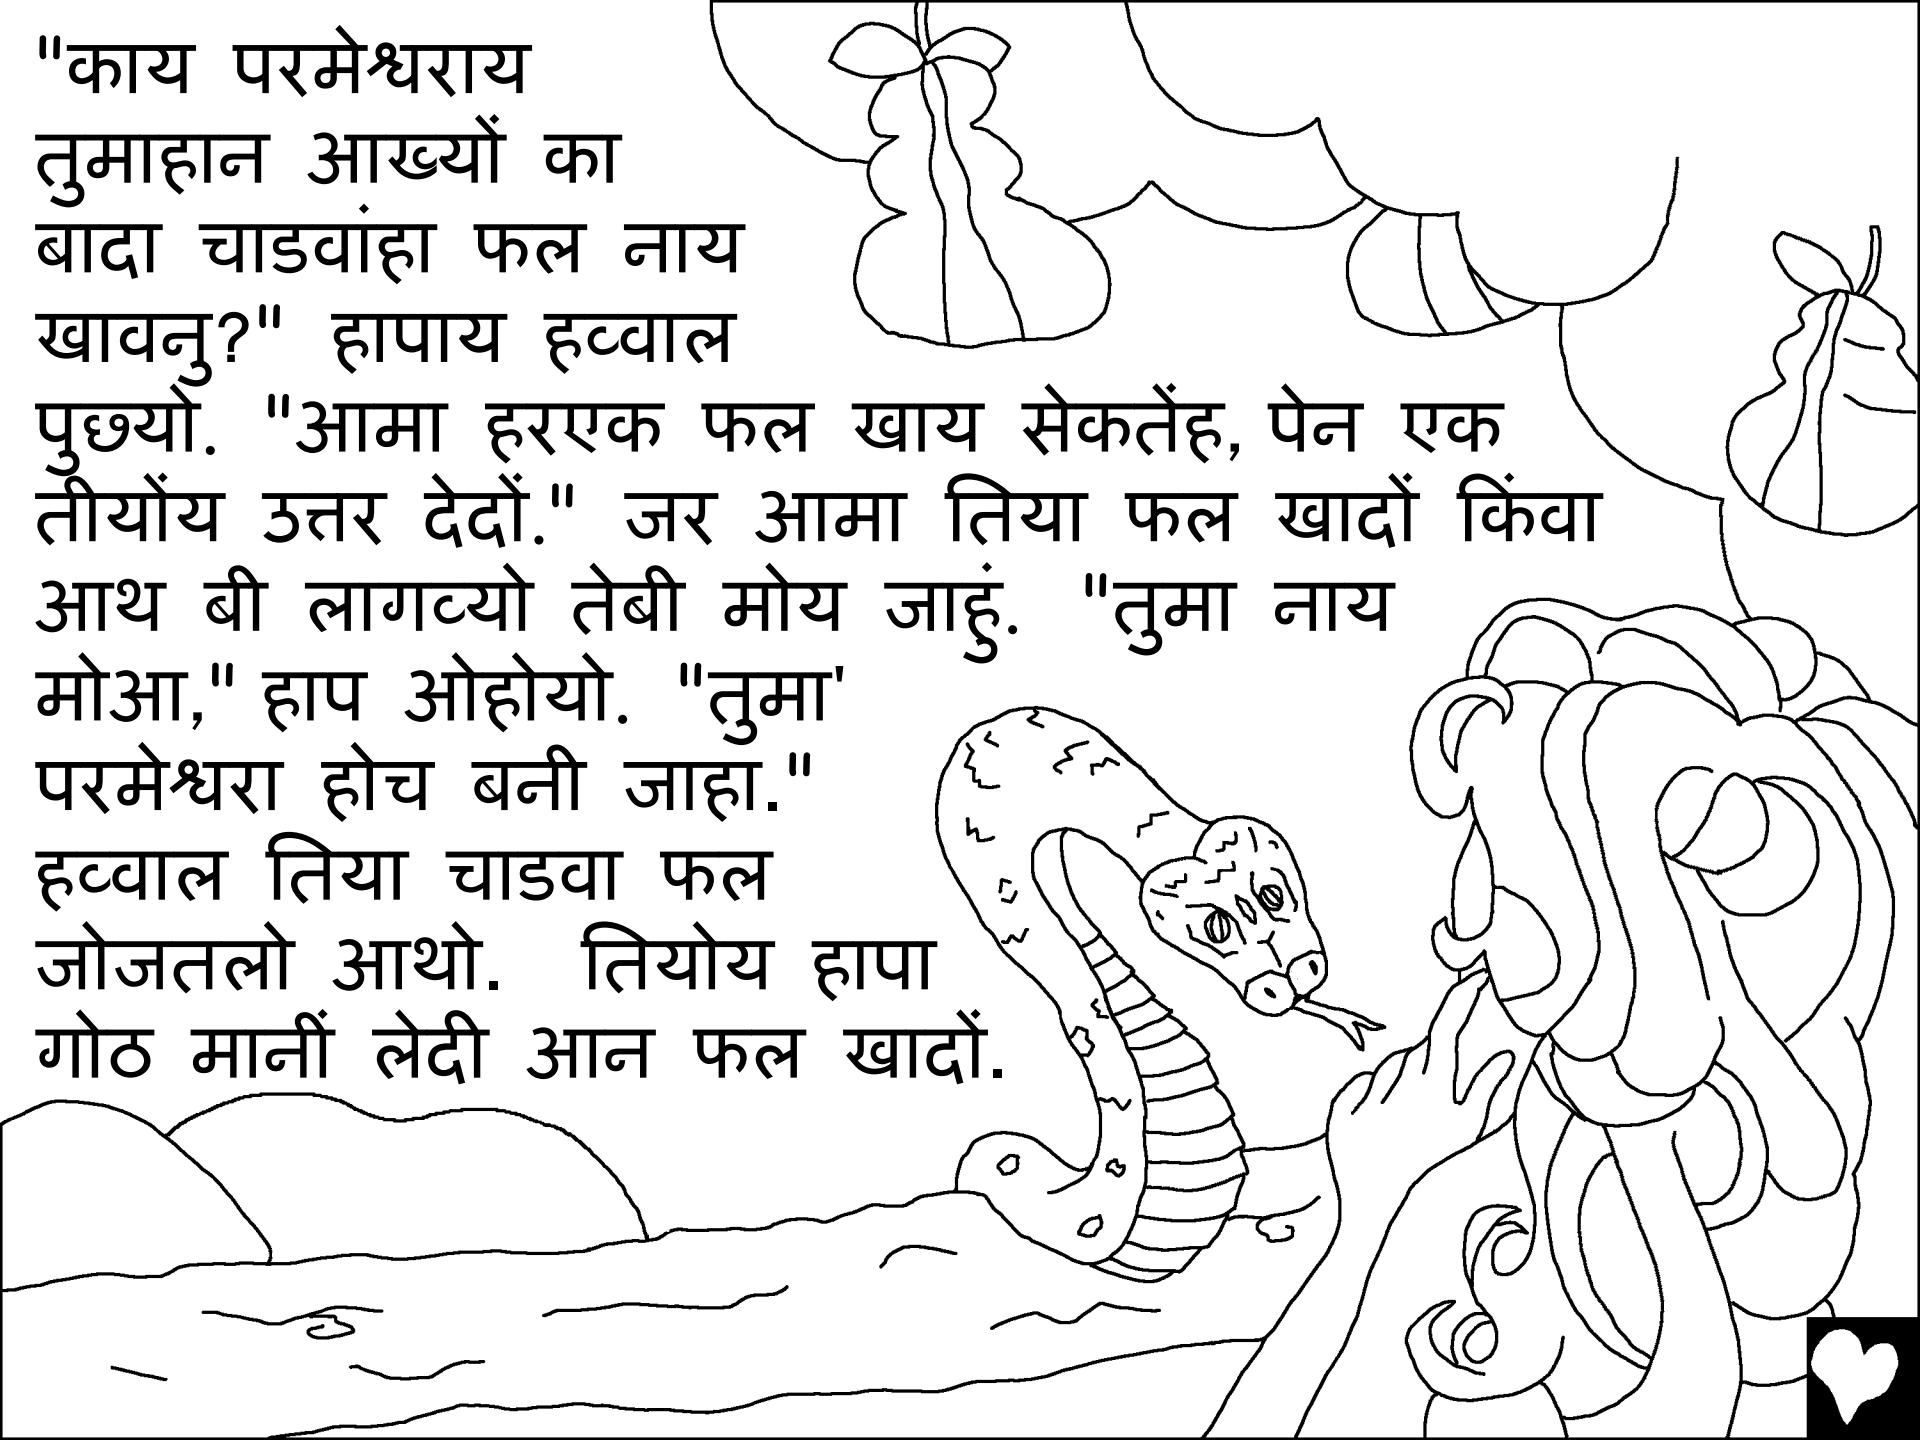 "काय परमेश्वराय
तुमाहान आख्यों का
बादा चाडवांहा फल नाय
खावनु?" हापाय हव्वाल
पुछ्यो. "आमा हरएक फल खाय सेकतेंह, पेन एक
तीयोंय उत्तर देदों." जर आमा तिया फल खादों किंवा
आथ बी लागव्यो तेबी मोय जाहुं. "तुमा नाय
मोआ," हाप ओहोयो. "तुमा'
परमेश्वरा होच बनी जाहा."
हव्वाल तिया चाडवा फल
जोजतलो आथो. तियोय हापा
गोठ मानीं लेदी आन फल खादों.